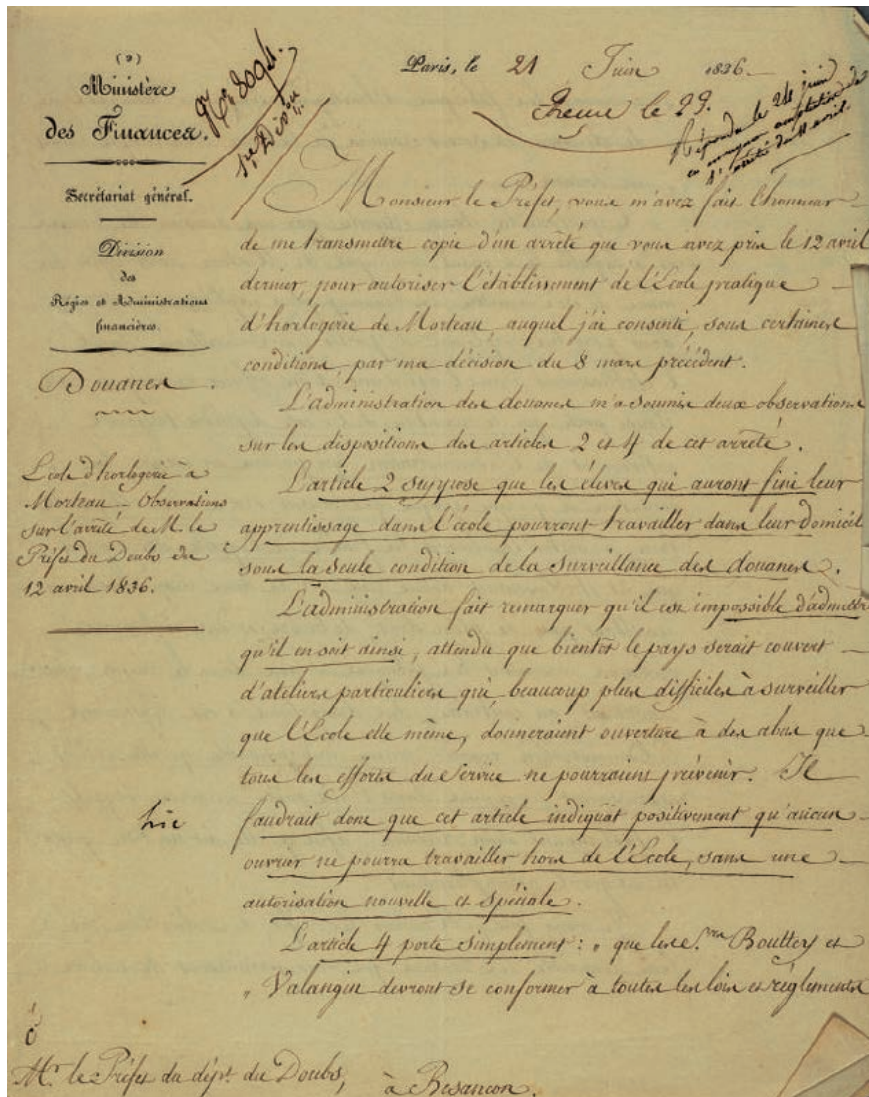 (9)
Ministère
des Finances.
Secrétariat général.
Division
des
Régies et Administrations
financières.
Douanes.
Ecole d'horlogerie à
Morteau – Observations
sur l'arrêté de M. le
Préfet du Doubs du
12 avril 1836.
1re Divon
Paris, le 21 Juin 1836.
Reçu le 23.
Répondu le 24 juin
en envoyant ampliation de
l'arrêté du 11 avril.
Monsieur le Préfet, vous m'avez fait l'honneur
de me transmettre copie d'un arrêté que vous avez pris le 12 avril
dernier, pour autoriser l'établissement de l'Ecole pratique
d'horlogerie de Morteau, auquel j'ai consenti, sous certaines
conditions, par ma décision du 8 mars précédent.
L'administration des douanes m'a soumis deux observations
sur les dispositions des articles 2 et 4 de cet arrêté.
L'article 2 suppose que les élèves qui auront fini leur
apprentissage dans l'école pourront travailler dans leur domicile
sous la seule condition de la surveillance des douanes.
L'administration fait remarquer qu'il est impossible d'admettre
qu'il en soit ainsi, attendu que bientôt le pays serait couvert
d'ateliers particuliers qui, beaucoup plus difficiles à surveiller
que l'Ecole elle même, donneraient ouverture à des abus que
tous les efforts du service ne pourraient prévenir. Il
hic
faudrait donc que cet article indiquât positivement qu'aucun
ouvrier ne pourra travailler hors de l'Ecole, sans une
autorisation nouvelle et spéciale.
L'article 4 porte simplement : „ que les S.rs Bouttey et
„ Valangin devront se conformer à toutes les lois et règlements
Mr. le Préfet du dépt. du Doubs, à Besançon.